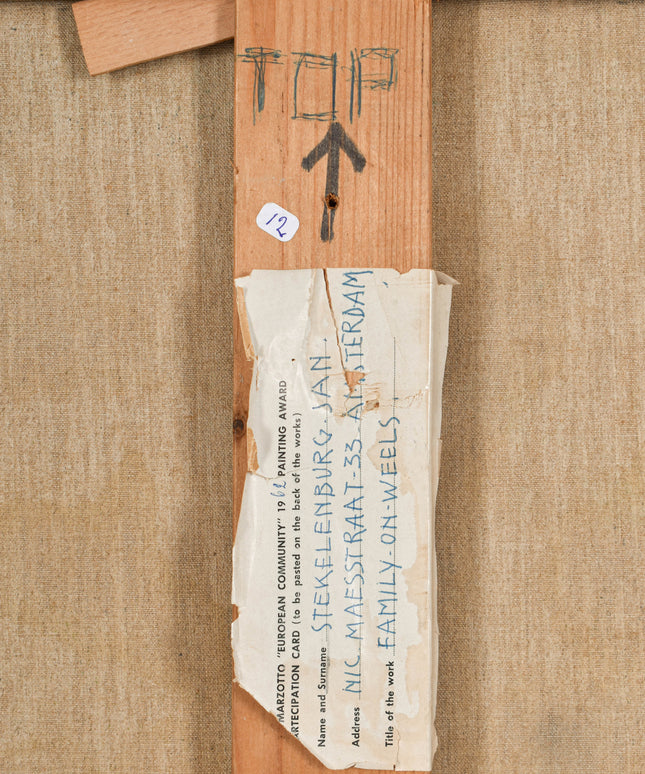 TOP
12
MARZOTTO "EUROPEAN COMMUNITY" 1962 PAINTING AWARD
ARTECIPATION CARD (to be pasted on the back of the works)
Name and Surname STEKELENBURG. JAN.
Address NIC MAESSTRAAT-33 AMSTERDAM
Title of the work FAMILY-ON-WEELS.